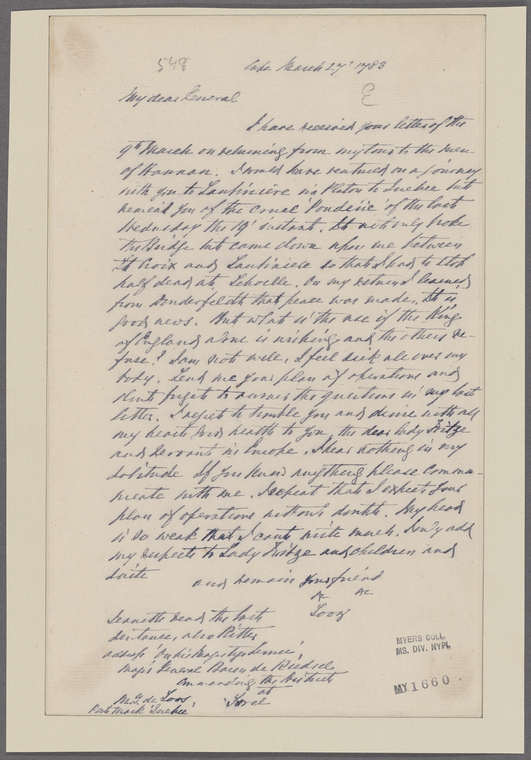 548
Cape March 27th 1783
E
My dear General
I have received your letter of the
9th March on returning from my tour to the men
of Hannau. I would have ventured on a journey
with you to via to Quebec but
remind you of the
Wednesday the 19th instant, It not only broke
the Bridge but came down upon me between
St Croix and so that I had to
half dead at, On my return I learned
from that peace was made. It is
good news. But what is the use if the King
of England alone is wishing and the others re-
fuse? I am not well, I feel sick all over my
body. Send me your plan of operations and
dont forget to answer the questions in my last
letter. I regret to trouble you and desire with all
my heart good health to you, the dear lady Fritze
and Servant in Europe. I hear nothing in my
solitude If you know anything please commu-
nicate with me. I repeat that I expect your
plan of operations without doubt. My head
is so weak that I cant write much. I only add
my respects to Lady Fridze and children and
suite
and remain your friend
&c &c
Loos
the last
sentence, also
address 'On his Majestys Service,
Major General Baron de Riedsel
Commanding the District
at
M. G. de Loos, 'Sorel
Post Mark 'Quebec,
MYERS COLL.
MS. DIV. NYPL
MY 1660